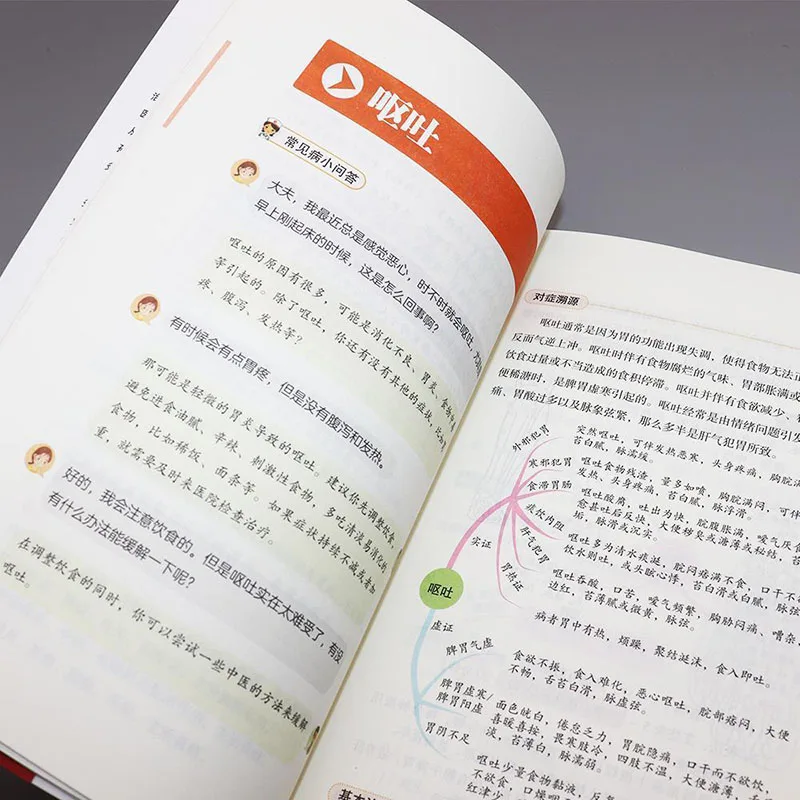 呕吐
常见病小问答
大夫，我最近总是感觉恶心，时不时就会呕吐，尤
早上刚起床的时候，这是怎么回事啊？
呕吐的原因有很多，可能是消化不良、胃炎、食物中
等引起的。除了呕吐，你还有没有其他的症状，比如
疼、腹泻、发热等？
有时候会有点胃疼，但是没有腹泻和发热。
那可能是轻微的胃炎导致的呕吐。建议你先调整饮食，
避免进食油腻、辛辣、刺激性食物，多吃清淡易消化的
食物，比如稀饭、面条等。如果症状持续不减或者加
重，就需要及时来医院检查治疗。
好的，我会注意饮食的，但是呕吐实在太难受了，有没
有什么办法能缓解一下呢？
在调整饮食的同时，你可以尝试一些中医的方法来缓解
呕吐。
对症溯源
呕吐通常是因为胃的功能出现失调，使得食物无法正
反而气逆上冲。呕吐时伴有食物腐烂的气味、胃部胀满或
饮食过量或不当造成的食积停滞。呕吐并伴有食欲减少、
便稀溏时，是脾胃虚寒引起的。呕吐经常是由情绪问题引发
痛、胃酸过多以及脉象弦紧，那么多半是肝气犯胃所致。
外邪犯胃
突然呕吐，可伴发热恶寒，头身疼痛，胸脘满
苔白腻，脉濡缓。
寒邪犯胃
呕吐食物残渣，量多如喷，胸脘满闷，可伴
发热、头身疼痛，苔白腻，脉浮滑。
食滞胃肠
呕吐酸腐，吐出为快，脘腹胀满，嗳气厌食
愈甚吐后反快，大便秽臭或溏薄或秘结，苔
垢，脉滑或沉实。
痰饮内阻
呕吐多为清水痰涎，脘闷痞满不食，口干不
饮水则吐，或头眩心悸，苔白滑或白腻，脉弦
肝气肥胃
呕吐吞酸，口苦，嗳气频繁，胸胁闷痛、嘈杂
边红，苔薄腻或微黄，脉弦。
胃热证
病者胃中有热，烦躁，聚结涎沫，食入即吐。
实证
呕吐
虚证
脾胃气虚
食欲不振，食入难化，恶心呕吐，脘部痞闷，大便
不畅，舌苔白滑，脉虚弦。
脾胃虚寒/
脾胃阳虚
面色㿠白，倦怠乏力，胃脘隐痛，口干而不欲饮，
喜暖喜按，畏寒肢冷，四肢不温，大便溏薄，
淡，苔薄白，脉濡弱。
胃阴不足
呕吐少量食物黏液，反复
不欲食，口燥咽
红津少